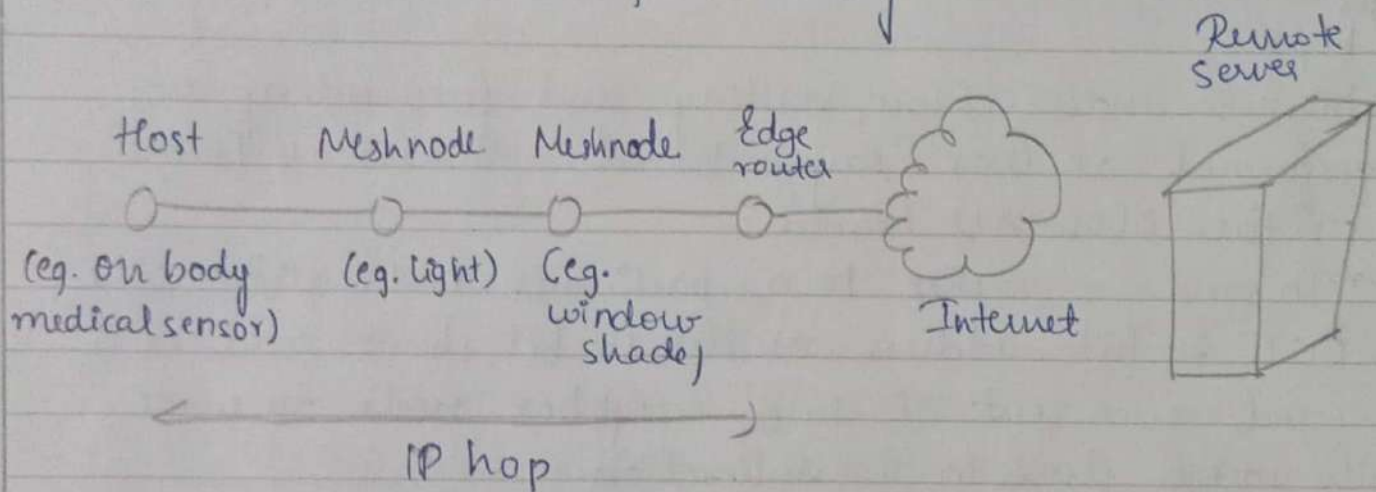 Remote
server
Host Meshnode Meshnode Edge
router
(eg. on body (eg. light) (eg.
medical sensor) window
shade)
Internet
IP hop